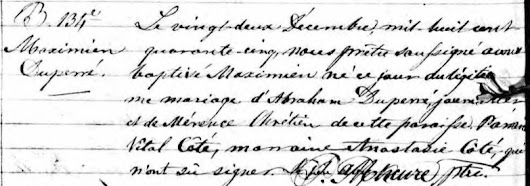 B. 134e
Maximien
Duperré.
Le vingt-deux Décembre, mil huit cent
quarante-cinq, nous prêtre soussigné avons
baptisé Maximien né ce jour du légiti
me mariage d'Abraham Duperré, journalier
et de Mérence Chrétien de cette paroisse. Parrain
Vital Coté, marraine Anastasie Coté, qui
n'ont su signer.
Ptre.